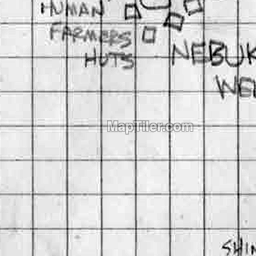 HUMAN
FARMERS
HUTS
NEBUK
WEL
MapTiler.com
SHIN